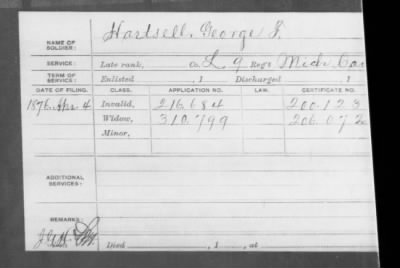 NAME OF SOLDIER: Hartsell, George F.
SERVICE: Late rank, Co. L, 9 Reg't Mich. Cav
TERM OF SERVICE: Enlisted , 1 Discharged , 1
DATE OF FILING. CLASS. APPLICATION NO. LAW. CERTIFICATE NO.
1876, Apr. 4 Invalid, 216.684 200.123
Widow, 310.799 206.072
Minor,
ADDITIONAL SERVICES:
REMARKS:
Died , 1 , at